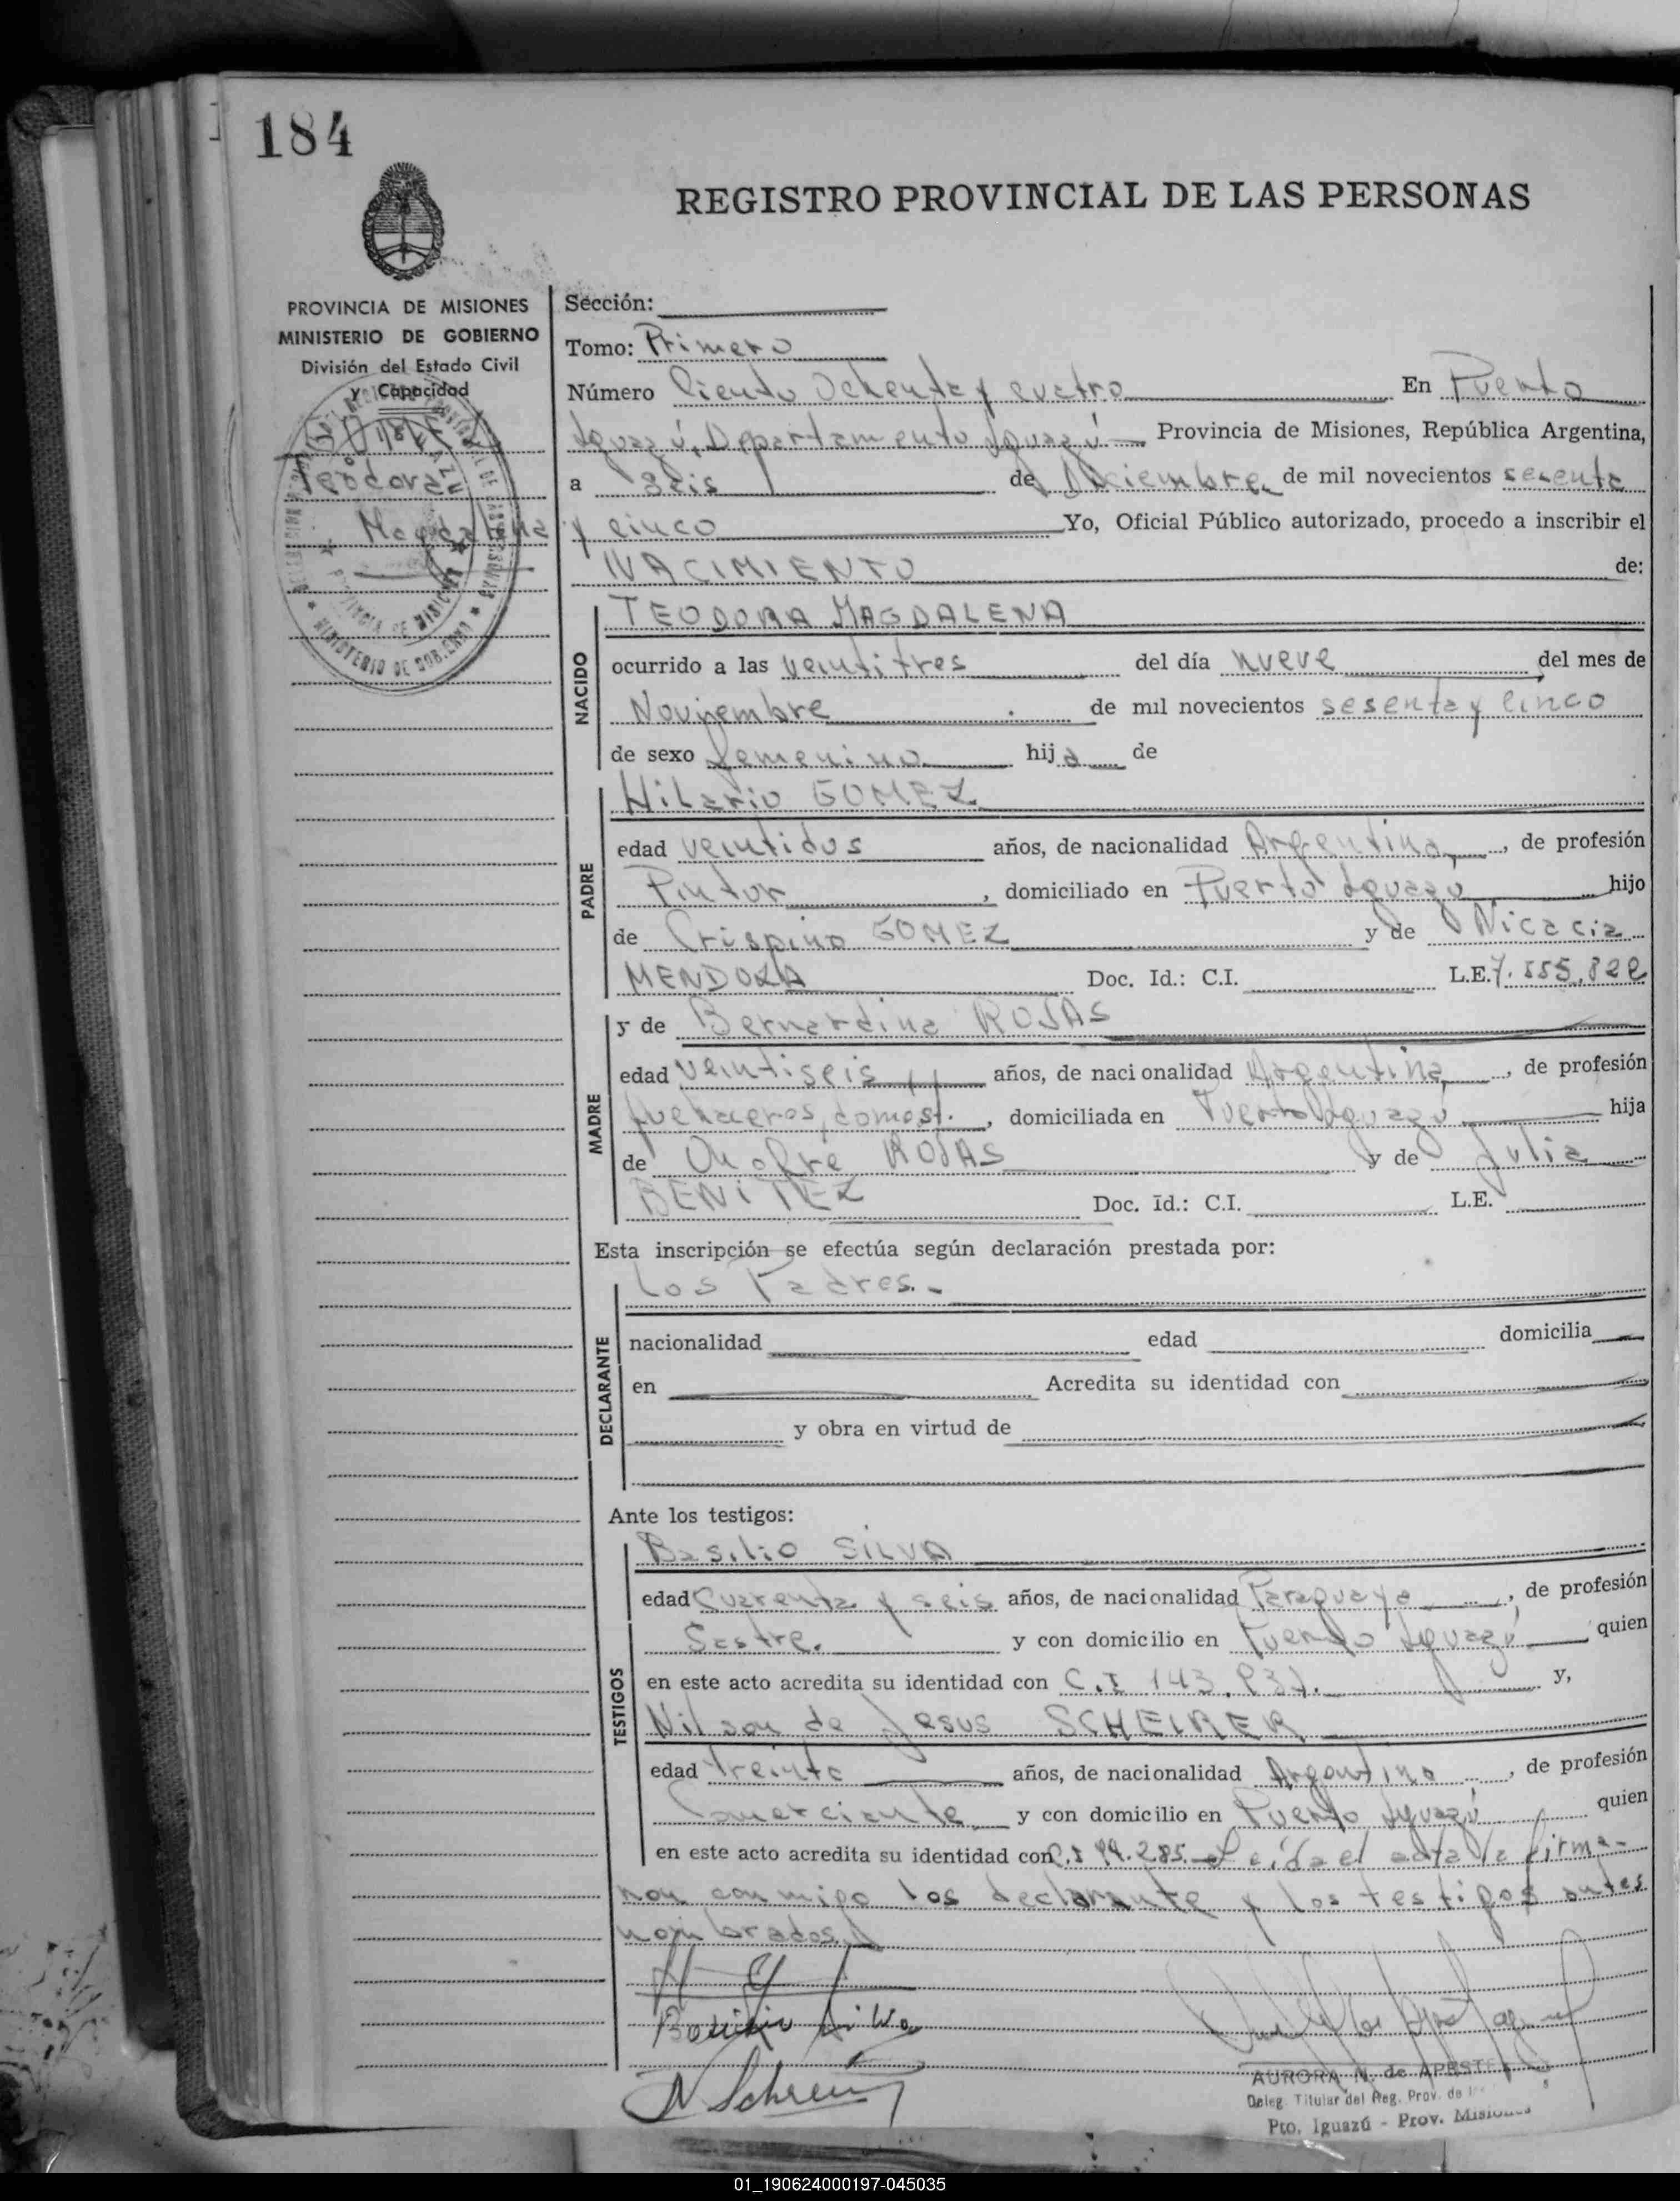 184
REGISTRO PROVINCIAL DE LAS PERSONAS
PROVINCIA DE MISIONES
MINISTERIO DE GOBIERNO
División del Estado Civil
y Capacidad
Teodora
Magdalena
Sección:
Tomo: Primero
Número Ciento Ochenta y cuatro En Puerto
Iguazú, Departamento Iguazú Provincia de Misiones, República Argentina,
a Seis de Diciembre de mil novecientos sesenta
y cinco Yo, Oficial Público autorizado, procedo a inscribir el
NACIMIENTO de:
NACIDO
TEODORA MAGDALENA
ocurrido a las veintitres del día nueve del mes de
Noviembre de mil novecientos sesenta y cinco
de sexo femenino hija de
PADRE
Hilario GOMEZ
edad veintidos años, de nacionalidad Argentina, de profesión
Pintor, domiciliado en Puerto Iguazú hijo
de Crispino GOMEZ y de Nicacia
MENDOZA Doc. Id.: C.I. L.E. 7.555.822
MADRE
y de Bernardina ROJAS
edad veintiseis años, de nacionalidad Argentina, de profesión
quehaceres domest., domiciliada en Puerto Iguazú hija
de Onofre ROJAS y de Julia
BENITEZ Doc. Id.: C.I. L.E.
Esta inscripción se efectúa según declaración prestada por:
DECLARANTE
Los Padres.-
nacionalidad edad domicilia
en Acredita su identidad con
y obra en virtud de
Ante los testigos:
TESTIGOS
Basilio SILVA
edad Cuarenta y seis años, de nacionalidad Paraguaya, de profesión
Sastre. y con domicilio en Puerto Iguazú quien
en este acto acredita su identidad con C.I 143.937. y,
Nilson de Jesus SCHEIRER
edad treinta años, de nacionalidad Argentina, de profesión
Comerciante y con domicilio en Puerto Iguazú quien
en este acto acredita su identidad con C.I 94.285.- Leída el acta la firma-
ron conmigo los declarante y los testigos antes
nombrados.
Basilio Silva
AURORA N. de
Deleg. Titular del Reg. Prov. de
Pto. Iguazú - Prov. Misiones
01_190624000197-045035